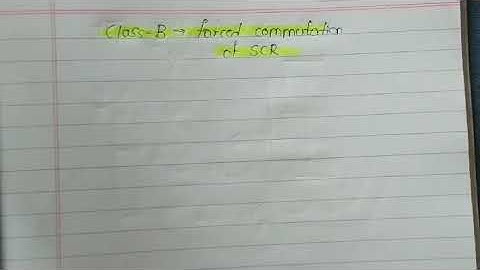 Class-B → forced commutation
of SCR